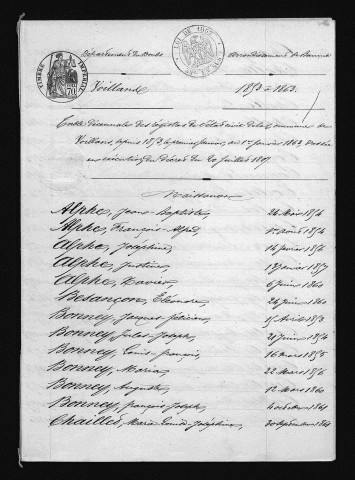 Département du Doubs
Arrondissement de Baume
TIMBRE IMPÉRIAL
70
Voillans
1853 à 1863.
Table décennale des registres de l'état civil de la Commune de
Voillans, depuis 1853 le premier janvier, au 1er janvier 1863, dressée
en exécution du décret du 20 Juillet 1807.
Naissances
Alphe, Jean-Baptiste, 24 Mars 1854
Alphe, François Alfred, 1er Août 1854
Alphe, Joséphine, 14 février 1856
Alphe, Justine, 1857
Alphe, Xavier, 6 Juin 1860
Besançon, Eléonore, 24 Juin 1860
Bonney, Jacques 15 Avril 1853
Bonney, Jules Joseph, 21 Juin 1854
Bonney, Louis François, 16 mars 1855
Bonney, Maria, 22 Mars 1856
Bonney, Auguste, 12 Mars 1860
Bonney, François Joseph, 4 octobre 1861
Chaillet, Marie Louise Joséphine, 30 Septembre 1861